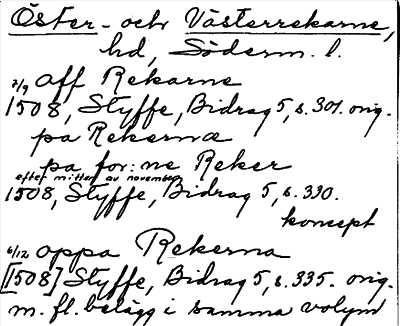 Öster- och Västerrekarne,
hd, Söderm. l.
7/9 aff Rekarne
1508, Styffe, Bidrag 5, s. 301. orig.
pa Rekernæ
pa for:ne Reker
efter mitten av november
1508, Styffe, Bidrag 5, s. 330.
koncept
6/12 oppa Rekerna
[1508] Styffe, Bidrag 5, s. 335. orig.
m. fl. belägg i samma volym